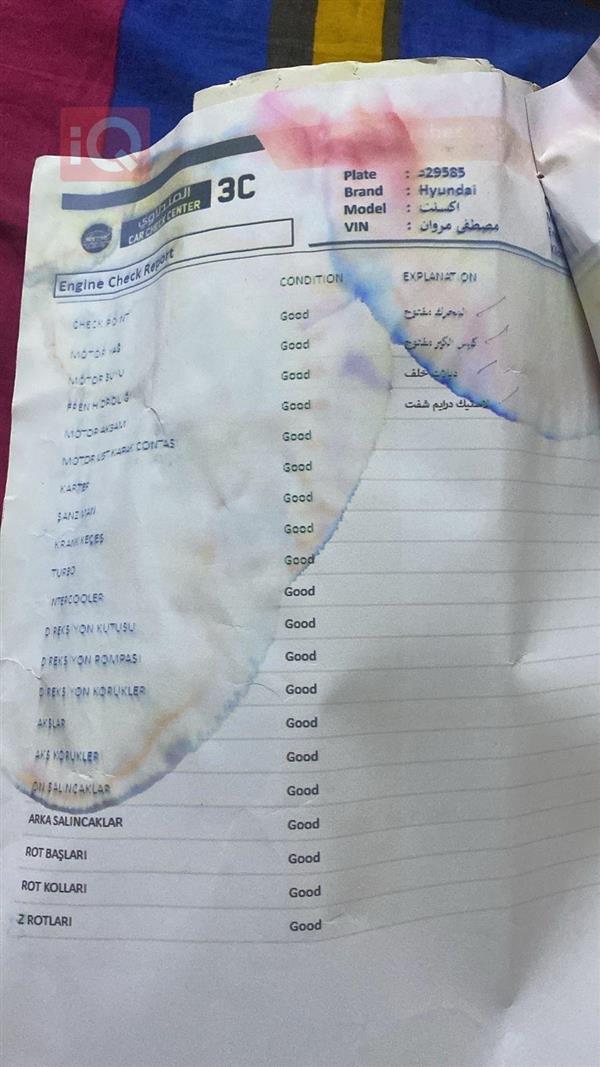 iQ
الصلاوي
CAR CHECK CENTER
3C
Plate : 29585د
Brand : Hyundai
Model : اكسنت
VIN : مصطفى مروان
Engine Check Report
CHECK POINT
CONDITION
EXPLANATION
MOTOR YAĞ Good المحرك مفتوح
MOTOR SUYU Good كويس الكير مفتوح
FREN HİDROLİĞİ Good دبلات خلف
MOTOR AKSAM Good لاستيك درايم شفت
MOTOR UST KAPAK CONTASI Good
KARTER Good
ŞANZIMAN Good
KRANK KEÇES Good
TURBO Good
INTERCOOLER Good
DİREKSİYON KUTUSU Good
DİREKSİYON POMPASI Good
DİREKSİYON KÖRÜKLER Good
AKSLAR Good
AKS KÖRÜKLER Good
ÖN SALINCAKLAR Good
ARKA SALINCAKLAR Good
ROT BAŞLARI Good
ROT KOLLARI Good
Z ROTLARI Good